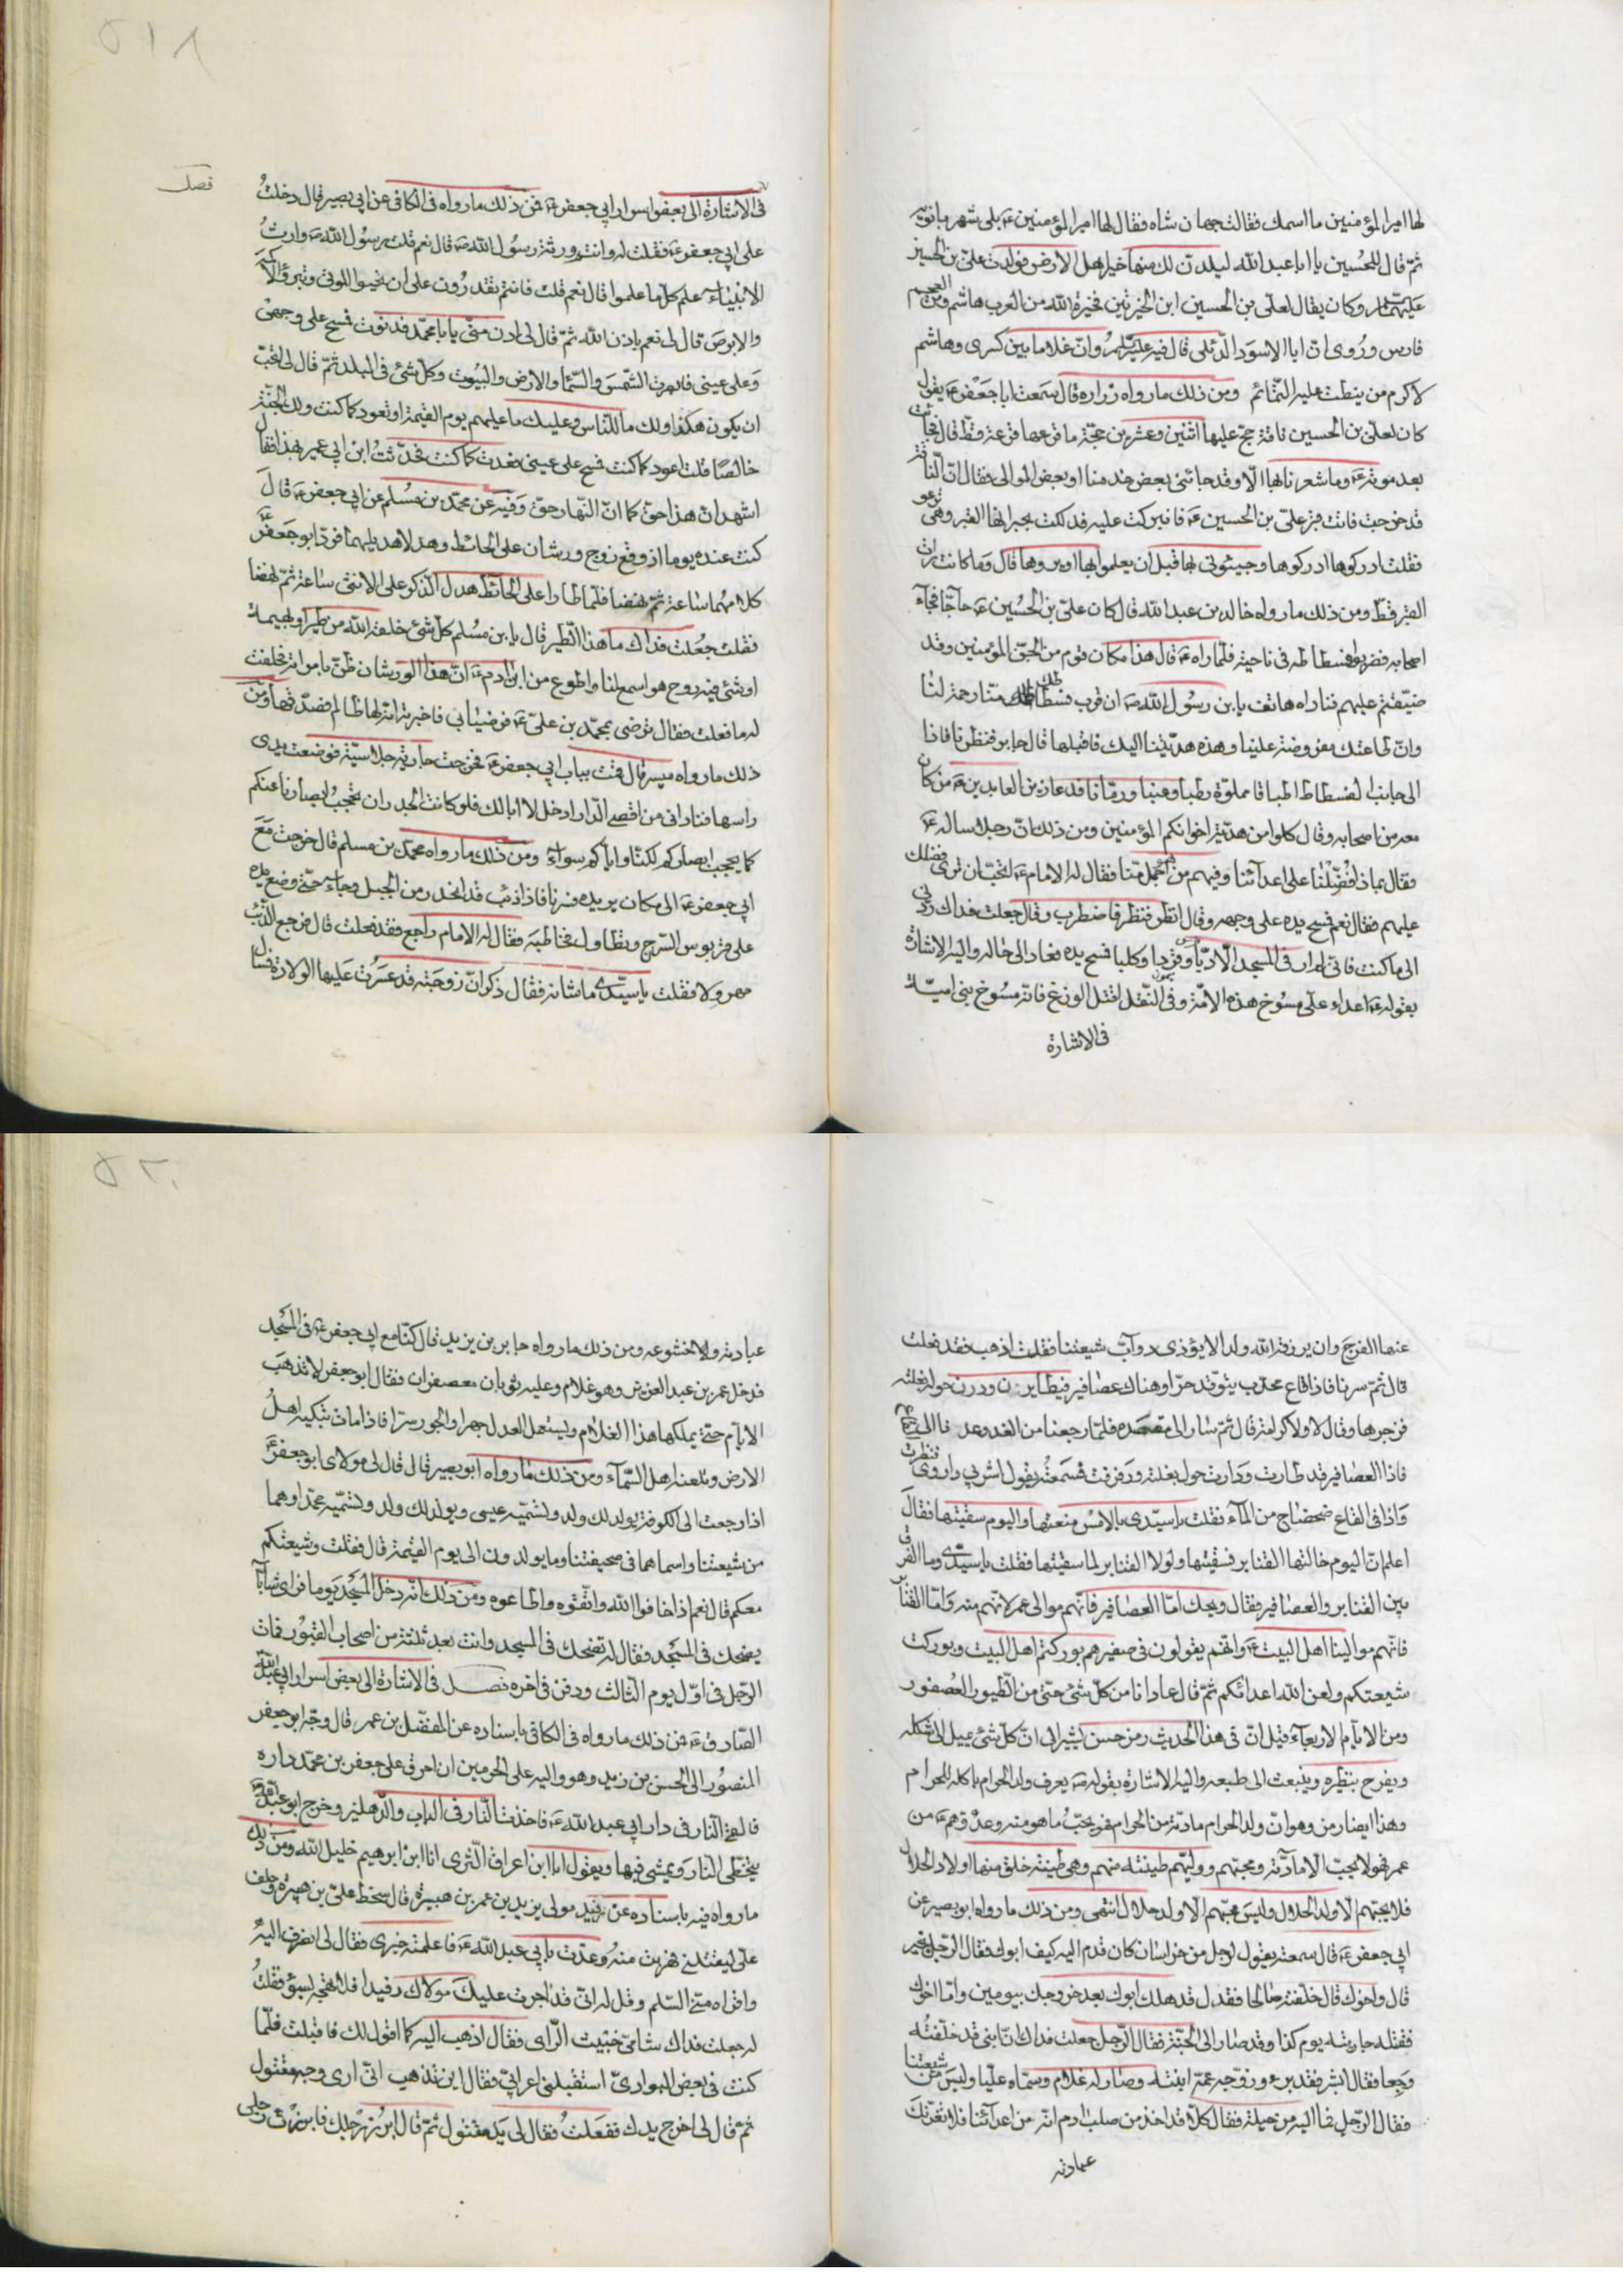 لها امير المؤمنين ما اسمك فقالت جهان شاه فقال لها امير المؤمنين ع بلى شهر بانويه
ثم قال للحسين يا ابا عبد الله ليلدن لك منها خير اهل الارض فولدت على بن الحسين
عليهما وكان يقال لعلى بن الحسين ابن الخيرتين فخيرة الله من العرب هاشم ومن العجم
فارس وروى ان ابا الاسود الدئلى قال فيه وان غلاما بين كسرى وهاشم
لاكرم من نيطت عليه التمائم ومن ذلك ما رواه زراره قال سمعت ابا جعفر ع يقول
كان لعلى بن الحسين ناقة حج عليها اثنين وعشرين حجة ما قرعها قرعة قط قال فجائت
بعد موته ع وما شعرنا بها الا وقد جائنى بعض خدمنا او بعض الموالى فقال ان الناقة
قد خرجت فاتت قبر على بن الحسين ع فانبركت عليه فدلكت بجرانها القبر وهى ترغو
فقلت ادركوها ادركوها وجيئونى بها قبل ان يعلموا بها او يروها قال وما كانت رات
القبر قط ومن ذلك ما رواه خالد بن عبد الله قال كان على بن الحسين ع حاجا فجاء
اصحابه فضربوا فسطاطه فى ناحية فلما راه ع قال هذا مكان قوم من الجن المؤمنين وقد
ضيقتم عليهم فناداه هاتف يا بن رسول الله ص ان قرب فسطاطك منا رحمة لنا
وان طاعتك مفروضة علينا وهذه هديتنا اليك فاقبلها قال جابر فنظرنا فاذا
الى جانب الفسطاط اطباقا مملوة رطبا وعنبا ورمانا فدعا زين العابدين ع من كان
معه من اصحابه وقال كلوا من هدية اخوانكم المؤمنين ومن ذلك ان رجلا ساله ع
فقال بماذا فضلنا على اعدائنا وفيهم من هو اجمل منا فقال له الامام ع اتحب ان ترى فضلك
عليهم فقال نعم فمسح يده على وجهه وقال انظر فنظر فاضطرب وقال جعلت فداك ردنى
الى ما كنت فانى لم ار فى المسجد الا دبا وقردا وكلبا فمسح يده فعاد الى حاله واليه الاشارة
بقوله ع اعداء على مسوخ هذه الامة وفى النقل اقتل الوزغ فانه مسوخ بنى امية
فى الاشارة
فصل
فى الاشارة الى بعض اسرار ابى جعفر ع فمن ذلك ما رواه فى الكافى عن ابى بصير قال دخلت
على ابى جعفر ع فقلت له وانت ورثة رسول الله ص قال نعم قلت رسول الله ص وارث
الانبياء علم كل ما علموا قال نعم قلت فانتم تقدرون على ان تحيوا الموتى وتبرؤا الاكمه
والابرص قال لى نعم باذن الله ثم قال لى ادن منى يا با محمد فدنوت فمسح على وجهى
وعلى عينى فابصرت الشمس والسماء والارض والبيوت وكل شئ فى البلد ثم قال لى اتحب
ان يكون هكذا ولك ما للناس وعليك ما عليهم يوم القيمة او تعود كما كنت ولك الجنة
خالصا قلت اعود كما كنت فمسح على عينى فعدت كما كنت فحدثت ابن ابى عمير بهذا فقال
اشهد ان هذا حق كما ان النهار حق وفيه عن محمد بن مسلم عن ابى جعفر ع قال
كنت عنده يوما اذ وقع زوج ورشان على الحائط وهدلا هديلهما فرد ابو جعفر ع
كلامهما ساعة ثم نهضا فلما طارا على الحائط هدل الذكر على الانثى ساعة ثم نهضا
فقلت جعلت فداك ما هذا الطير قال يا بن مسلم كل شئ خلقه الله من طير او بهيمة
او شئ فيه روح هو اسمع لنا واطوع من ابن ادم ع ان هذا الورشان ظن بامراته فحلفت
له ما فعلت فقال ترضى بمحمد بن على ع فرضيا بى فاخبرته انه لها ظالم فصدقها ومن
ذلك ما رواه ميسر قال قمت بباب ابى جعفر ع فخرجت جارية جلاسية فوضعت يدى
راسها فنادانى من اقصى الدار ادخل لا ابا لك فلو كانت الجدران تحجب ابصارنا عنكم
كما يحجب ابصاركم لكنا واياكم سواء ومن ذلك ما رواه محمد بن مسلم قال خرجت مع
ابى جعفر ع الى مكان يريده فسرنا فاذا ذئب قد انحدر من الجبل وجاء حتى وضع يده
على قربوس السرج وتطاول فخاطبه فقال له الامام راجع فقد فعلت قال فرجع الذئب
مهرولا فقلت يا سيدى ما شانه فقال ذكر ان زوجته قد عسرت عليها الولادة فسال
عنها الفرج وان يرزقه الله ولدا لا يؤذى دواب شيعتنا فقلت اذهب فقد فعلت
قال ثم سرنا فاذا قاع مجدب يتوقد حرا وهناك عصافير فتطايرن ودرن حول بغلته
فزجرها وقال لا ولا كرامة قال ثم سار الى مقصده فلما رجعنا من الغد وعدنا الى
فاذا العصافير قد طارت ودارت حول بغلته ورفرفت فسمعته يقول اشربى واروى فنظرت
واذا فى القاع ضحضاح من الماء فقلت يا سيدى بالامس منعتها واليوم سقيتها فقال
اعلم ان اليوم خالتها القنابر فسقيتها ولولا القنابر لما سقيتها فقلت يا سيدى وما الفرق
بين القنابر والعصافير فقال ويحك اما العصافير فانهم موالى عمر لانهم منه واما القنابر
فانهم موالينا اهل البيت ع وانهم يقولون فى صفيرهم بوركتم اهل البيت وبوركت
شيعتكم ولعن الله اعدائكم ثم قال عادانا من كل شئ حتى من الطيور العصفور
ومن الايام الاربعاء قيل ان فى هذا الحديث رمز حسن يشير الى ان كل شئ يميل الى شكله
ويفرح بنظيره وينبعث الى طبعه واليه الاشارة بقوله ص يعرف ولد الحرام باكله الحرام
وهذا ايضا رمز وهو ان ولد الحرام مادته من الحرام فهو يحب ما هو منه وعدوهم ع من
عمر فهو لا يحب الا مادته ومحبتهم ووليهم طينته منهم وهى طينة خلق منها اولاد الحلال
فلا يحبهم الا ولد الحلال وليس محبهم الا ولد حلال انتهى ومن ذلك ما رواه ابو بصير عن
ابى جعفر ع قال سمعته يقول لرجل من خراسان كان قدم اليه كيف ابوك فقال الرجل بخير
قال واخوك قال خلفته صالحا فقال قد هلك ابوك بعد خروجك بيومين واما اخوك
فقتله جاريته يوم كذا وقد صار الى الجنة فقال الرجل جعلت فداك ان ابنى قد خلفته
وجعا فقال ابشر فقد برء وزوجه عمه ابنته وصار له غلام وسماه عليا وليس من شيعتنا
فقال الرجل فما اليه من حيلة فقال كلا قد اخذ من صلب ادم انه من اعدائنا فلا تغرنك
عبادته
عبادته ولا خشوعه ومن ذلك ما رواه جابر بن يزيد قال كنا مع ابى جعفر ع فى المسجد
فدخل عمر بن عبد العزيز وهو غلام وعليه ثوبان معصفران فقال ابو جعفر لا تذهب
الايام حتى يملكها هذا الغلام ويستعمل العدل جهرا والجور سرا فاذا مات تبكيه اهل
الارض وتلعنه اهل السماء ومن ذلك ما رواه ابو بصير قال قال لى مولاى ابو جعفر ع
اذا رجعت الى الكوفة يولد لك ولد وتسميه عيسى ويولد لك ولد وتسميه محمدا وهما
من شيعتنا واسماهما فى صحيفتنا وما يولدون الى يوم القيمة قال فقلت وشيعتكم
معكم قال نعم اذا خافوا الله واتقوه واطاعوه ومن ذلك انه دخل المسجد يوما فراى شابا
يضحك فى المسجد فقال له تضحك فى المسجد وانت بعد ثلثة من اصحاب القبور فمات
الرجل فى اول يوم الثالث ودفن فى اخره فصل فى الاشارة الى بعض اسرار ابى عبد الله
الصادق ع فمن ذلك ما رواه فى الكافى باسناده عن المفضل بن عمر قال وجه ابو جعفر
المنصور الى الحسن بن زيد وهو واليه على الحرمين ان احرق على جعفر بن محمد داره
فالقى النار فى دار ابى عبد الله ع فاخذت النار فى الباب والدهليز وخرج ابو عبد الله
يتخطى النار ويمشى فيها ويقول انا ابن اعراق الثرى انا ابن ابرهيم خليل الله ومن ذلك
ما رواه فيه باسناده عن رفيد مولى يزيد بن عمر بن هبيرة قال سخط على بن هبيرة وحلف
على ليقتلنى فهربت منه وعذت بابى عبد الله ع فاعلمته خبرى فقال لى انصرف اليه
واقراه منى السلم وقل له انى قد اجرت عليك مولاك رفيدا فلا تهجه بسوء فقلت
له جعلت فداك شامى خبيث الراى فقال اذهب اليه كما اقول لك فاقبلت فلما
كنت فى بعض البوارى استقبلنى اعرابى فقال اين تذهب انى ارى وجه مقتول
ثم قال لى اخرج يدك ففعلت فقال لى يد مقتول ثم قال ابرز رجلك فابرزت رجلى